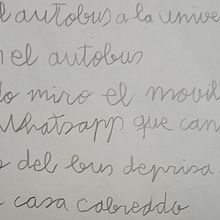 el autobus a la unive
n el autobus
do miro el movil
Whatsapp que can
s del bus deprisa
casa cabreado